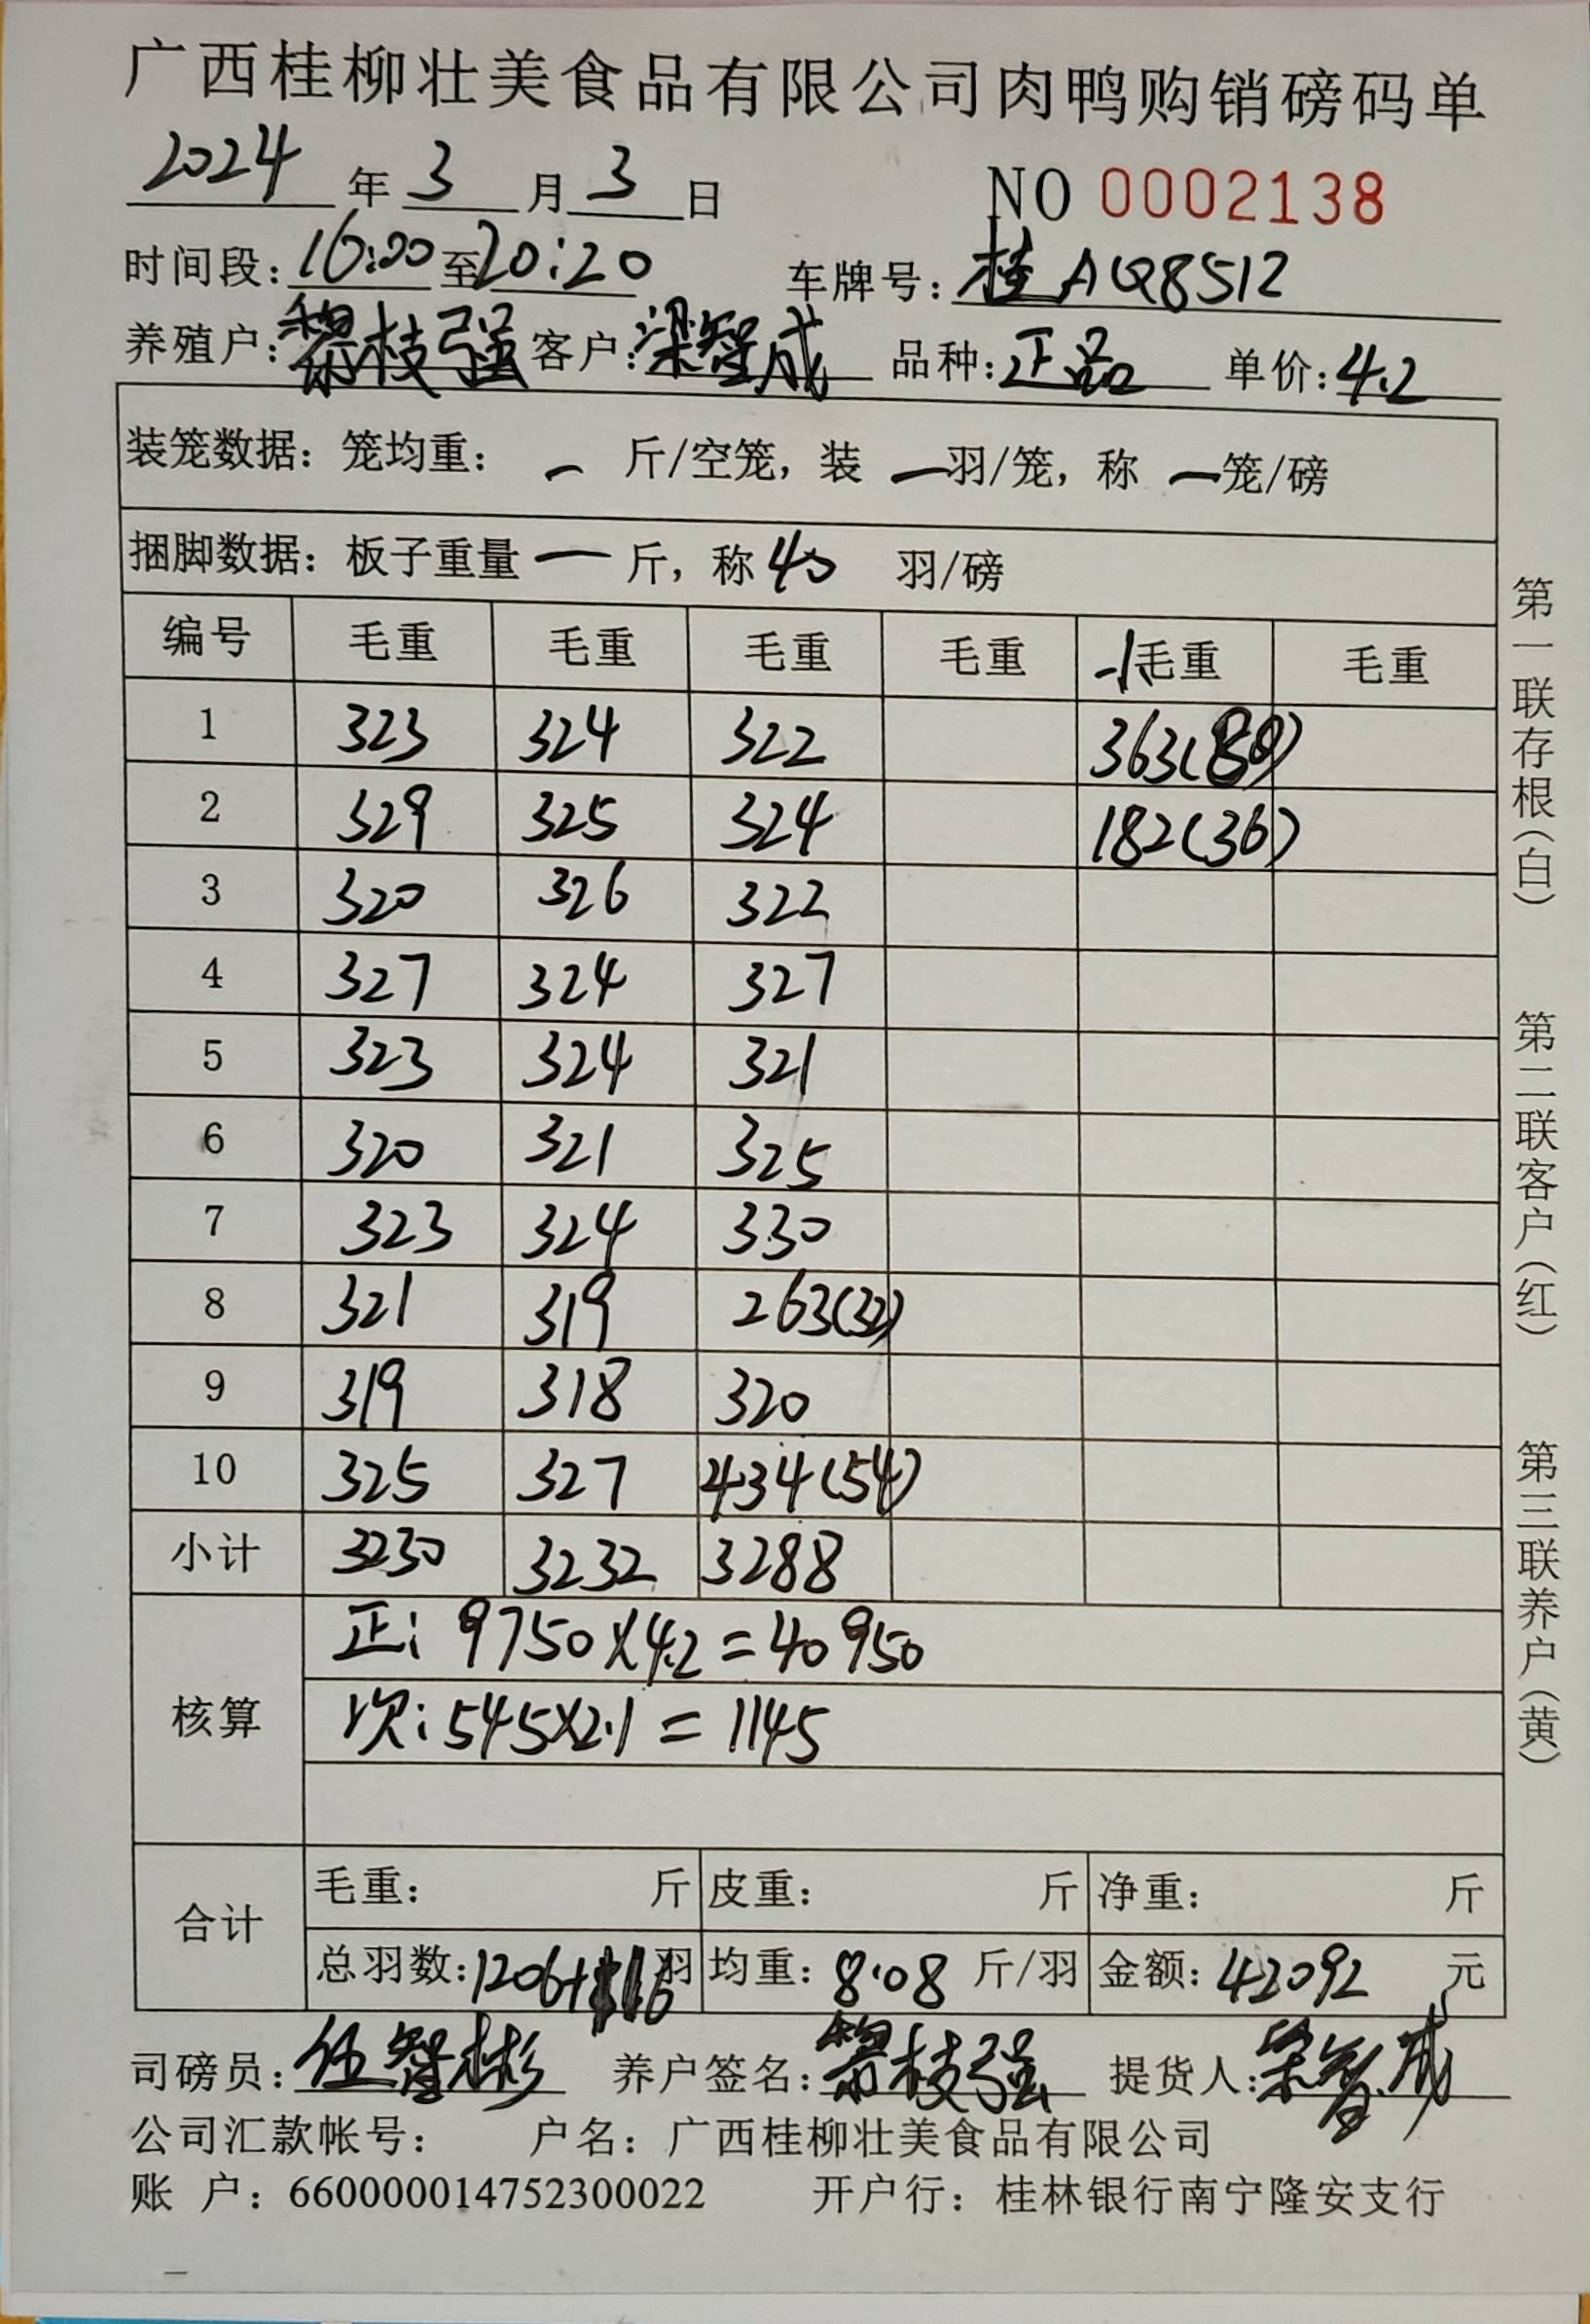 广西桂柳壮美食品有限公司肉鸭购销磅码单
2024年3月3日 NO 0002138
时间段:16:00至20:20 车牌号:桂AQ8512
养殖户:黎枝强 客户:梁智成 品种:正品 单价:4.2
装笼数据: 笼均重: — 斤/空笼, 装 — 羽/笼, 称 — 笼/磅
捆脚数据: 板子重量 — 斤, 称 40 羽/磅
编号 毛重 毛重 毛重 毛重 毛重 毛重
1 323 324 322 363(80)
2 329 325 324 182(36)
3 320 326 322
4 327 324 327
5 323 324 321
6 320 321 325
7 323 324 330
8 321 319 263(32)
9 319 318 320
10 325 327 434(54)
小计 3230 3232 3288
核算
正: 9750X4.2=40950
次:545X2.1=1145
合计
毛重: 斤 皮重: 斤 净重: 斤
总羽数:1206+116羽 均重:8.08 斤/羽 金额:42092 元
司磅员:伍智彬 养户签名:黎枝强 提货人:梁智成
公司汇款帐号: 户名:广西桂柳壮美食品有限公司
账 户:660000014752300022 开户行:桂林银行南宁隆安支行
第一联存根(白) 第二联客户(红) 第三联养户(黄)